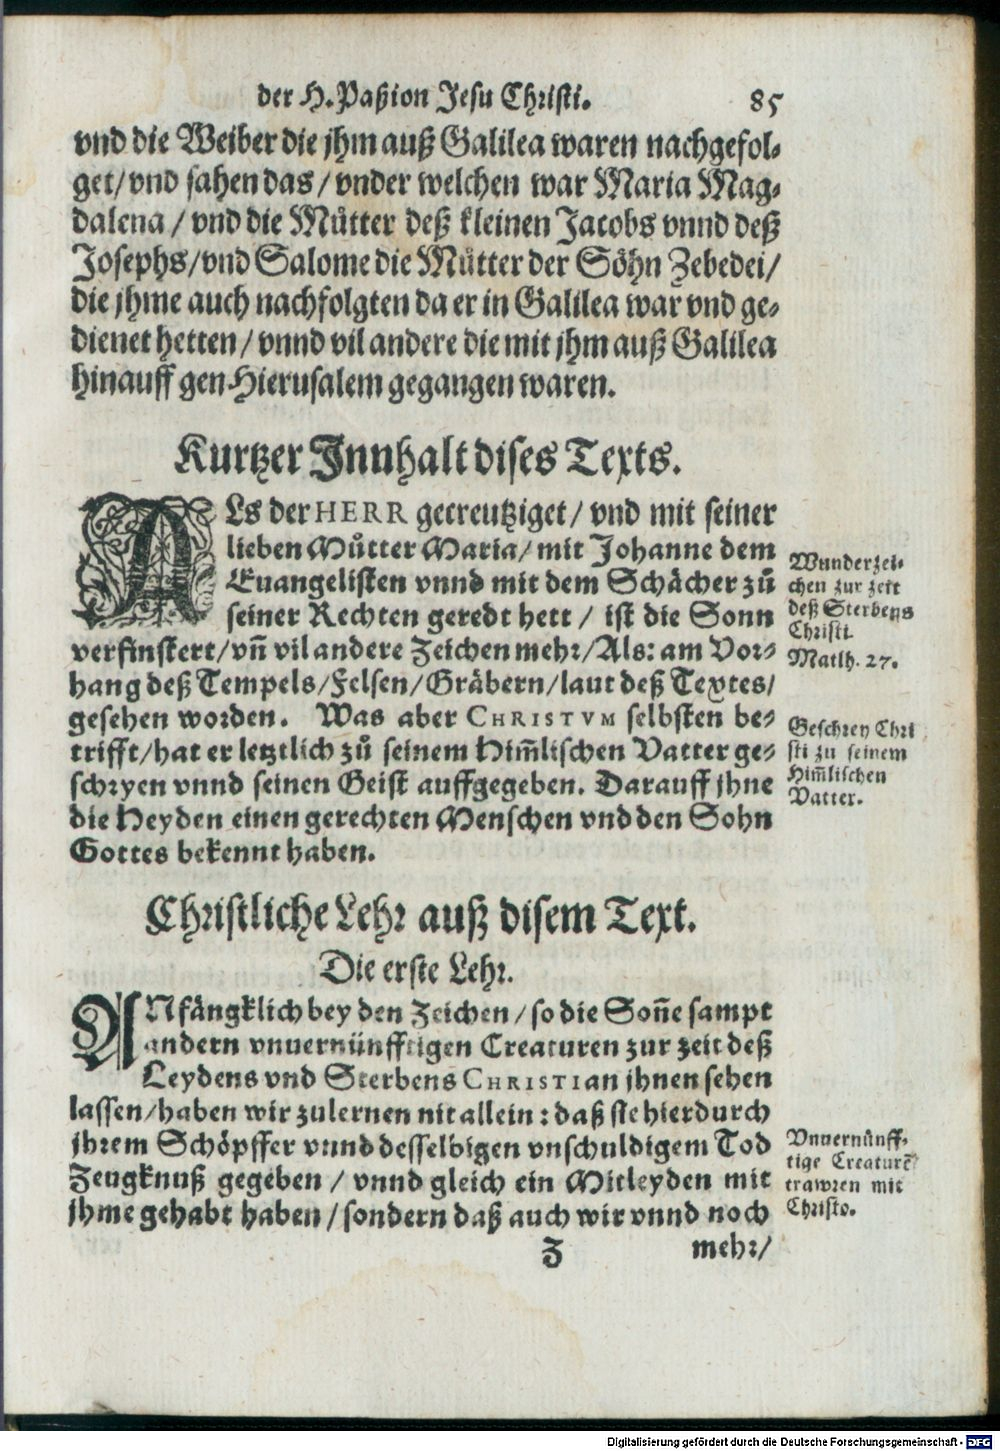 der H. Paßion Jesu Christi. 85
vnd die Weiber die jhm auß Galilea waren nachgefol-
get/ vnd sahen das / vnder welchen war Maria Mag-
dalena / vnd die Můtter deß kleinen Jacobs vnnd deß
Josephs/ vnd Salome die Můtter der Söhn Zebedei/
die jhme auch nachfolgten da er in Galilea war vnd ge-
dienet hetten/ vnnd vil andere die mit jhm auß Galilea
hinauff gen Hierusalem gegangen waren.
Kurtzer Innhalt dises Texts.
ALs der HERR gecreutziget/ vnd mit seiner
lieben Můtter Maria/ mit Johanne dem
Euangelisten vnnd mit dem Schächer zů
seiner Rechten geredt hett / ist die Sonn
verfinstert/ vn̄ vil andere Zeichen mehr/ Als: am Vor-
hang deß Tempels/ Felsen/ Gräbern/ laut deß Textes/
gesehen worden. Was aber CHRISTVM selbsten be-
trifft/ hat er letztlich zů seinem Him̄lischen Vatter ge-
schryen vnnd seinen Geist auffgegeben. Darauff jhne
die Heyden einen gerechten Menschen vnd den Sohn
Gottes bekennt haben.
Wunderzei-
chen zur zeit
deß Sterbens
Christi.
Matth. 27.
Geschrey Chri
sti zu seinem
Him̄lischen
Vatter.
Christliche Lehr auß disem Text.
Die erste Lehr.
ANfängklich bey den Zeichen/ so die Son̄e sampt
andern vnuernünfftigen Creaturen zur zeit deß
Leydens vnd Sterbens CHRISTI an jhnen sehen
lassen/ haben wir zulernen nit allein: daß sie hierdurch
jhrem Schöpffer vnnd desselbigen vnschuldigem Tod
Zeugknuß gegeben / vnnd gleich ein Mitleyden mit
jhme gehabt haben / sondern daß auch wir vnnd noch
Vnuernünff-
tige Creaturē
trawren mit
Christo.
Z mehr/
Digitalisierung gefördert durch die Deutsche Forschungsgemeinschaft - DFG